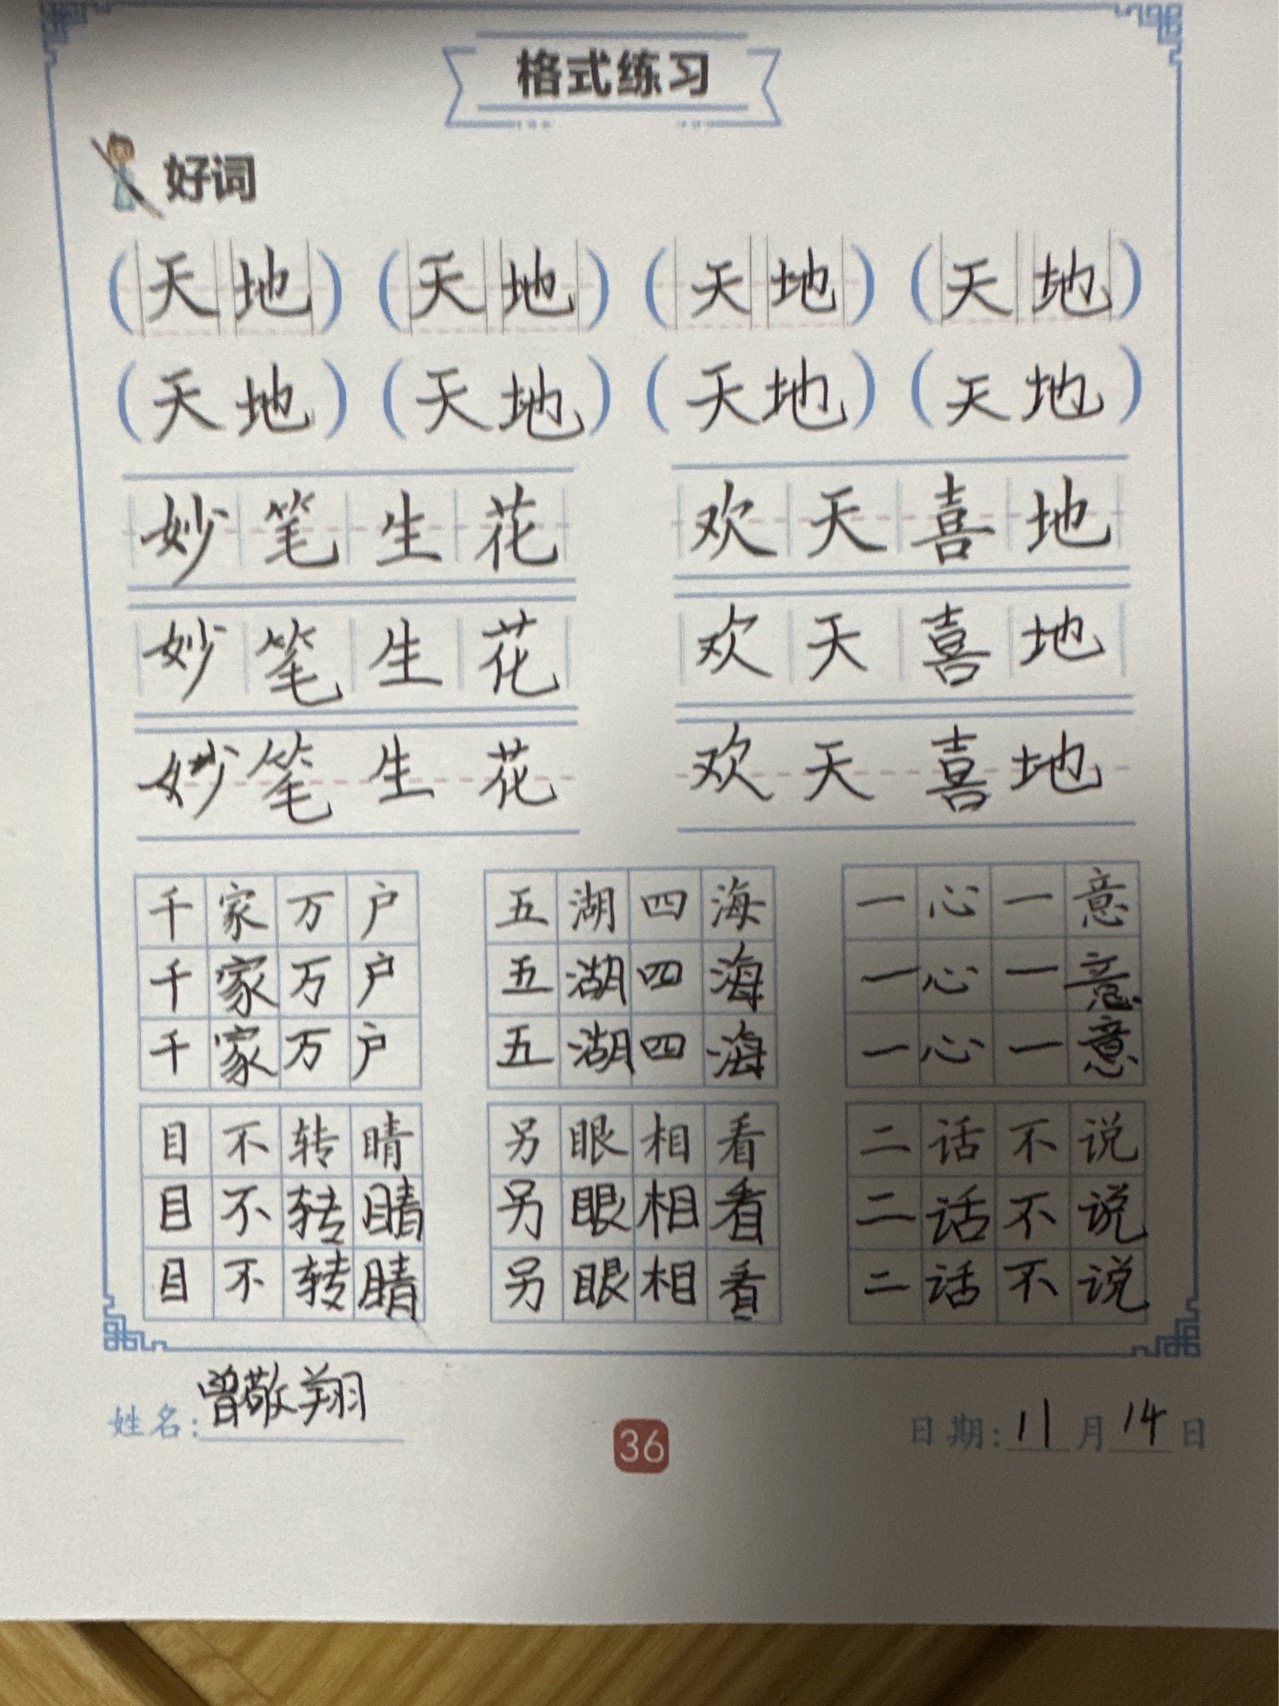 格式练习
好词
（天地）（天地）（天地）（天地）
（天地）（天地）（天地）（天地）
妙笔生花 欢天喜地
妙笔生花 欢天喜地
妙笔生花 欢天喜地
千家万户 五湖四海 一心一意
千家万户 五湖四海 一心一意
千家万户 五湖四海 一心一意
目不转睛 另眼相看 二话不说
目不转睛 另眼相看 二话不说
目不转睛 另眼相看 二话不说
姓名：曾敬翔 36 日期：11月14日